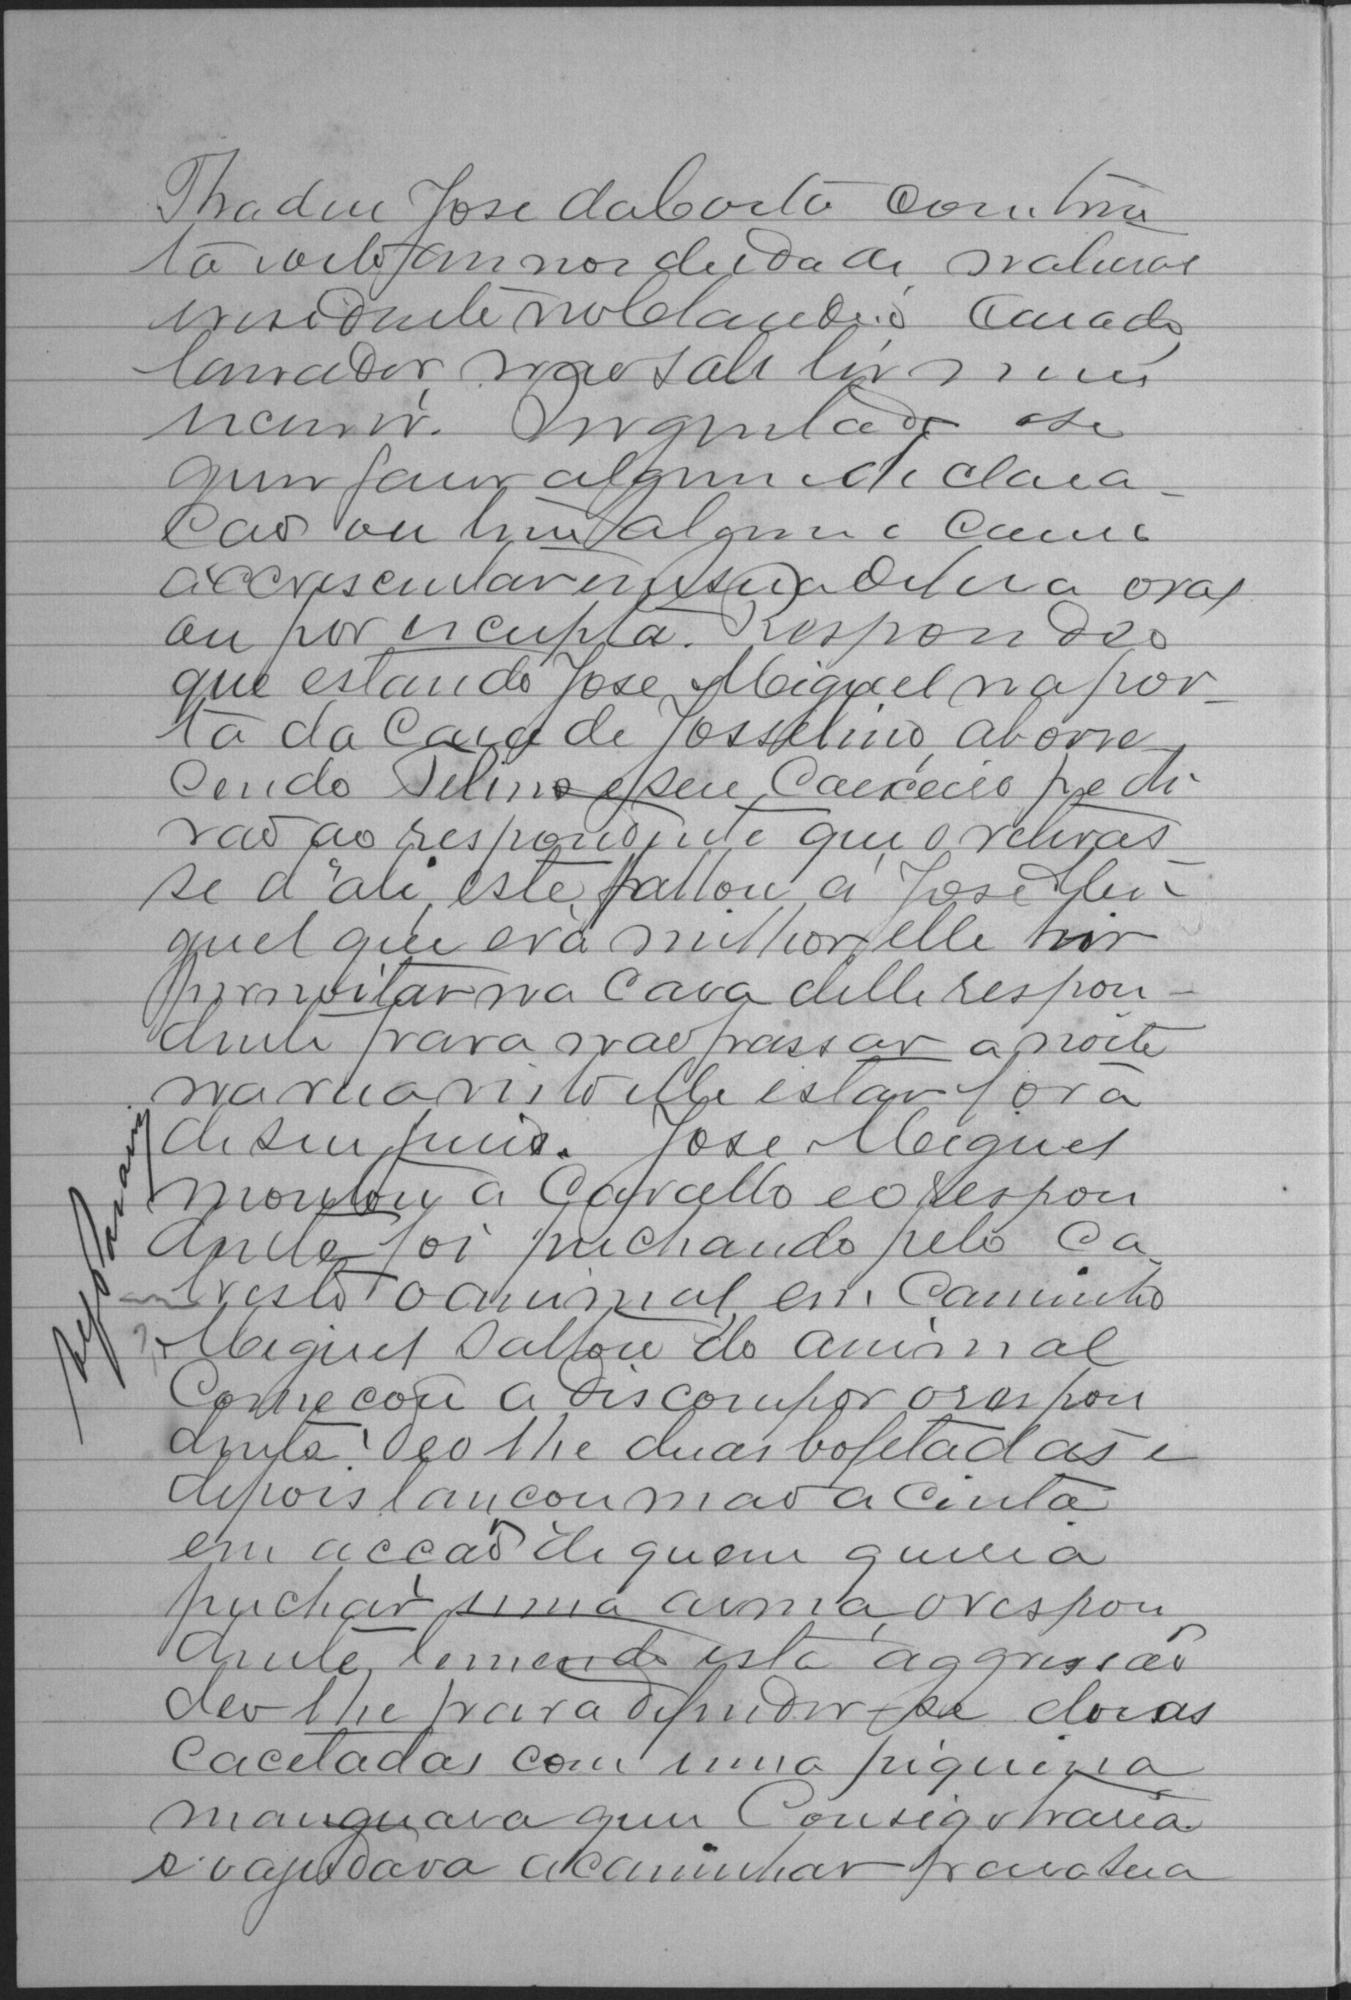 Thadeu José da Costa com trin
ta e oito annos de idade, natural
e residente no Claudio, casado
lavrador, não sabe ler nem
escrever. Perguntado se
quer fazer alguma declara-
ção ou tem alguma causa
accrescentar em sua defeza oral
ou por escripta. Respondeo
que estando José Miguel na por-
ta da casa de Josselino, aborre
cendo Selino e seu caixeiro pedi
rão ao respondente que o retiras-
se d'ali, este fallou a José Mi-
guel que era milhor elle hir
pernoitar na casa delle respon-
dente para não passar a noite
na rua visto elle estar fora
de seu juizo. José Miguel
montou a cavallo e o respon
dente foi puchando pelo ca
bresto o animal, em caminho
Miguel saltou do animal
começou a discompor o respon
dente deo lhe duas bofetadas e
depois lançou mão a cinta
em acção de quem queria
puchar uma arma, o respon
dente, temendo esta aggressão
deo lhe para defender-se duas
cacetadas com uma piquena
manguara que consigo trazia
e o ajudava a caminhar para sua